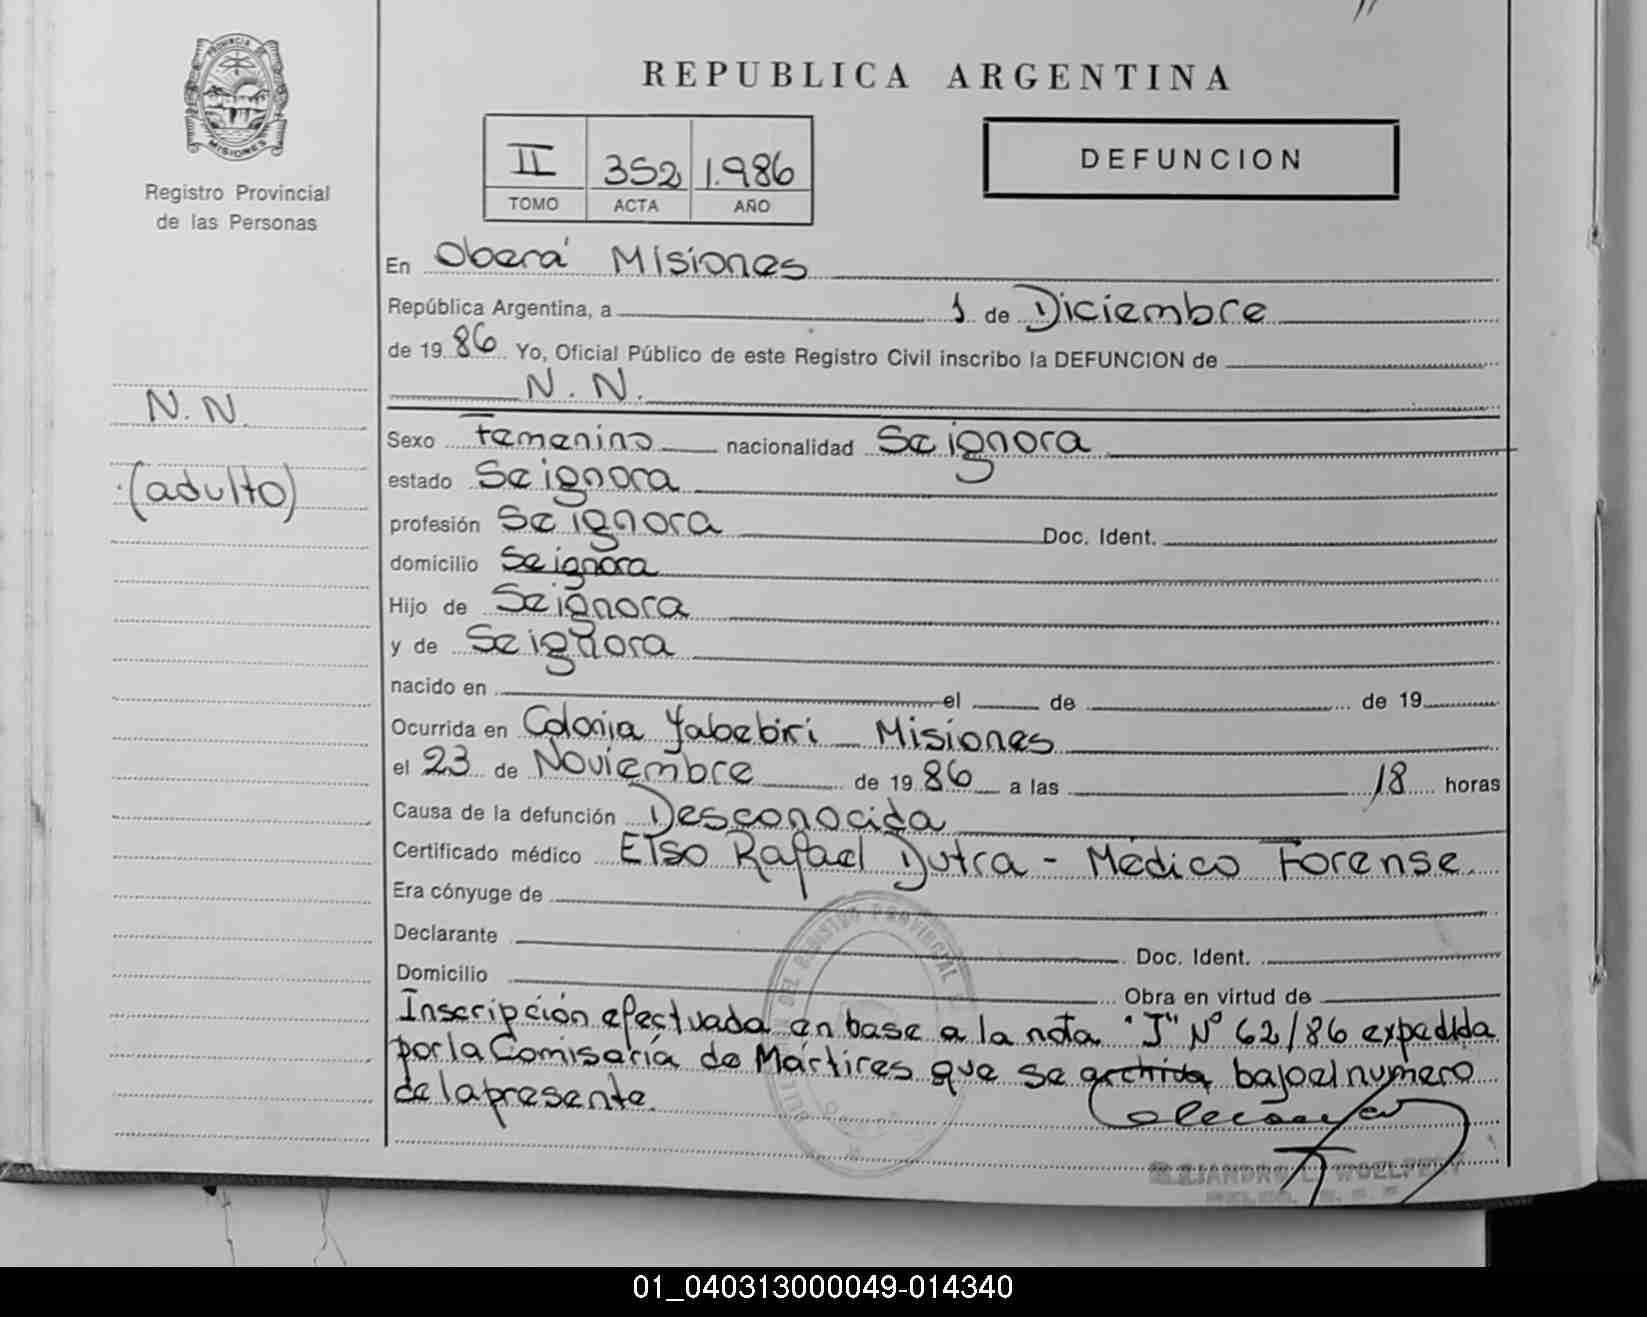 PROVINCIA DE
MISIONES
Registro Provincial
de las Personas
REPUBLICA ARGENTINA
II 352 1.986
TOMO ACTA AÑO
DEFUNCION
En Oberá Misiones
República Argentina, a 1 de Diciembre
de 19 86 Yo, Oficial Público de este Registro Civil inscribo la DEFUNCION de
N. N.
N. N.
(adulto)
Sexo Femenino nacionalidad Se ignora
estado Se ignora
profesión Se ignora Doc. Ident.
domicilio Se ignora
Hijo de Se ignora
y de Se ignora
nacido en el de de 19
Ocurrida en Colonia Yabebiri Misiones
el 23 de Noviembre de 19 86 a las 18 horas
Causa de la defunción Desconocida
Certificado médico Elso Rafael Dutra - Médico Forense.
Era cónyuge de
Declarante Doc. Ident.
Domicilio Obra en virtud de
Inscripción efectuada en base a la nota "J" Nº 62/86 expedida
por la Comisaría de Mártires que se archiva bajo el numero
de la presente.
DEL REGISTRO PROVINCIAL
01_040313000049-014340